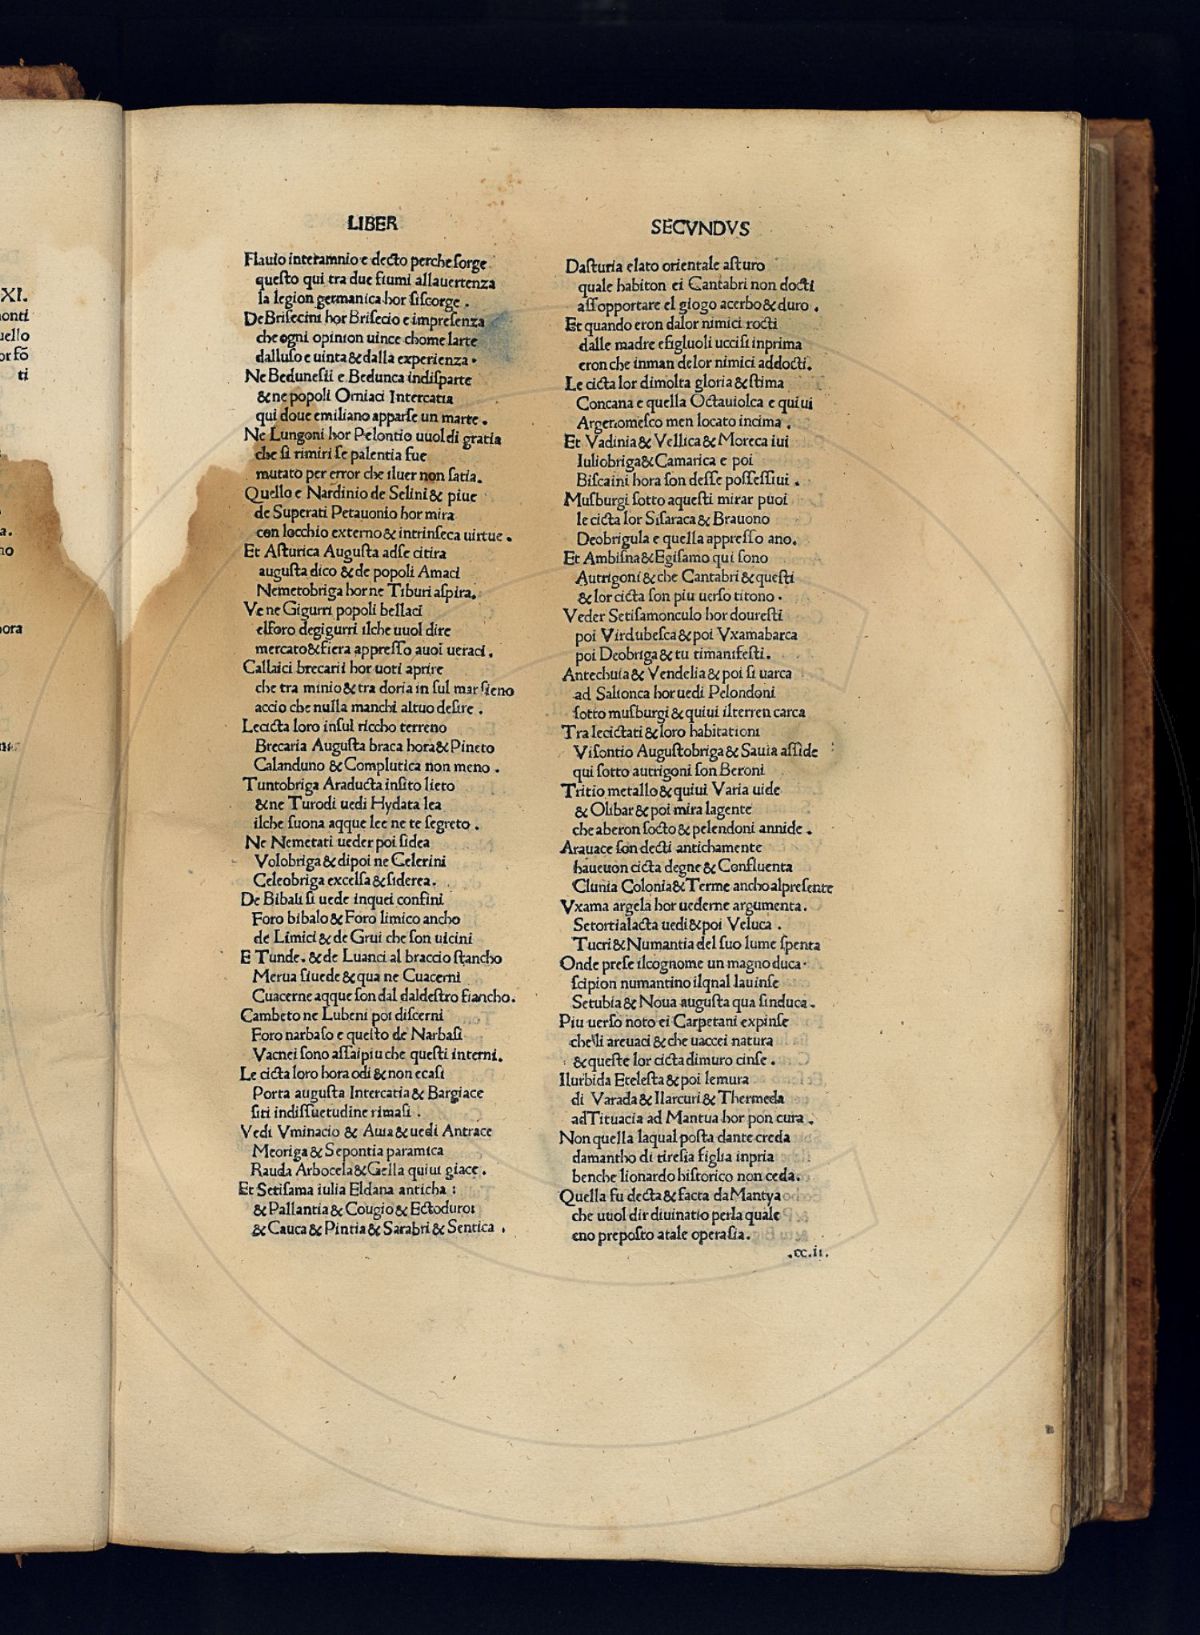 XI.
onti
uello
or fō
ti
a.
no
ora
LIBER
Flauio interamnio e decto perche sorge
questo qui tra due fiumi allauertenza
la legion germanica hor siscorge .
De Brisecini hor Brisecio e impresenza
che ogni opinion uince chome larte
dalluso e uinta & dalla experienza .
Ne Bedunesii e Bedunca indisparte
& ne popoli Orniaci Intercatia
qui doue emiliano apparse un marte .
Ne Lungoni hor Pelontio uuol di gratia
che si rimiri se palentia fue
mutato per error che iluer non satia.
Quello e Nardinio de Selini & piue
de Superati Petauonio hor mira
con locchio externo & intrinseca uirtue .
Et Asturica Augusta adse citira
augusta dico & de popoli Amaci
Nemetobriga hor ne Tiburi aspira.
Ve ne Gigurri popoli bellaci
elforo degigurri ilche uuol dire
mercato & fiera appresso auoi ueraci .
Callaici brecarii hor uoti aprire
che tra minio & tra doria in sul mar sieno
accio che nulla manchi altuo desire .
Lecicta loro insul riccho terreno
Brecaria Augusta braca hora & Pineto
Calanduno & Complutica non meno .
Tuntobriga Araducta insito lieto
& ne Turodi uedi Hydata lea
ilche suona aqque lee ne te segreto .
Ne Nemetati ueder poi sidea
Volobriga & dipoi ne Celerini
Celeobriga excelsa & siderea.
De Bibali si uede inquei confini
Foro bibalo & Foro limico ancho
de Limici & de Grui che son uicini
E Tunde. & de Luanci al braccio stancho
Merua siuede & qua ne Cuacerni
Cuacerne aqque son dal daldestro fiancho.
Cambeto ne Lubeni poi discerni
Foro narbaso e questo de Narbasi
Vacnei sono assai piu che questi interni.
Le cicta loro hora odi & non ecasi
Porta augusta Intercatia & Bargiace
siti indissuetudine rimasi .
Vedi Vminacio & Auia & uedi Antrace
Meoriga & Sepontia paramica
Rauda Arbocela & Gella quiui giace .
Et Setisama iulia Eldana anticha :
& Pallantia & Cougio & Ectoduroi
& Cauca & Pintia & Sarabri & Sentica .
SECVNDVS
Dasturia elato orientale asturo
quale habiton ei Cantabri non docti
assopportare el giogo acerbo & duro .
Et quando eron dalor nimici rocti
dalle madre efigluoli uccisi inprima
eron che inman delor nimici addocti.
Le cicta lor dimolta gloria & stima
Concana e quella Octauiolca e quiui
Argenomesco men locato incima .
Et Vadinia & Vellica & Moreca iui
Iuliobriga & Camarica e poi
Biscaini hora son desse possessiui .
Musburgi sotto aquesti mirar puoi
le cicta lor Sisaraca & Brauono
Deobrigula e quella appresso ano.
Et Ambisna & Egisamo qui sono
Autrigoni & che Cantabri & questi
& lor cicta son piu uerso titono .
Veder Setisamonculo hor douresti
poi Virdubesca & poi Vxamabarca
poi Deobriga & tu timanifesti .
Antechuia & Vendelia & poi si uarca
ad Salionca hor uedi Pelondoni
sotto musburgi & quiui ilterren carca
Tra lecictati & loro habitationi
Visontio Augustobriga & Sauia asside
qui sotto autrigoni son Beroni
Tritio metallo & quiui Varia uide
& Olibar & poi mira lagente
che aberon socto & pelendoni annide .
Arauace son decti antichamente
haueuon cicta degne & Confluenta
Clunia Colonia & Terme ancho alpresente
Vxama argela hor uederne argumenta.
Setortialacta uedi & poi Veluca .
Tucri & Numantia del suo lume spenta
Onde prese ilcognome un magno duca .
scipion numantino ilqnal lauinse
Setubia & Noua augusta qua sinduca .
Piu uerso noto ei Carpetani expinse
chelli areuaci & che uaccei natura
& queste lor cicta dimuro cinse .
Ilurbida Etelesta & poi lemura
di Varada & Ilarcuri & Thermeda
ad Tituacia ad Mantua hor pon cura .
Non quella laqual posta dante creda
damantho di tiresia figlia inpria
benche lionardo historico non ceda.
Quella fu decta & facta da Mantya
che uuol dir diuinatio perla quale
eno preposto atale opera sia .
.cc.ii.